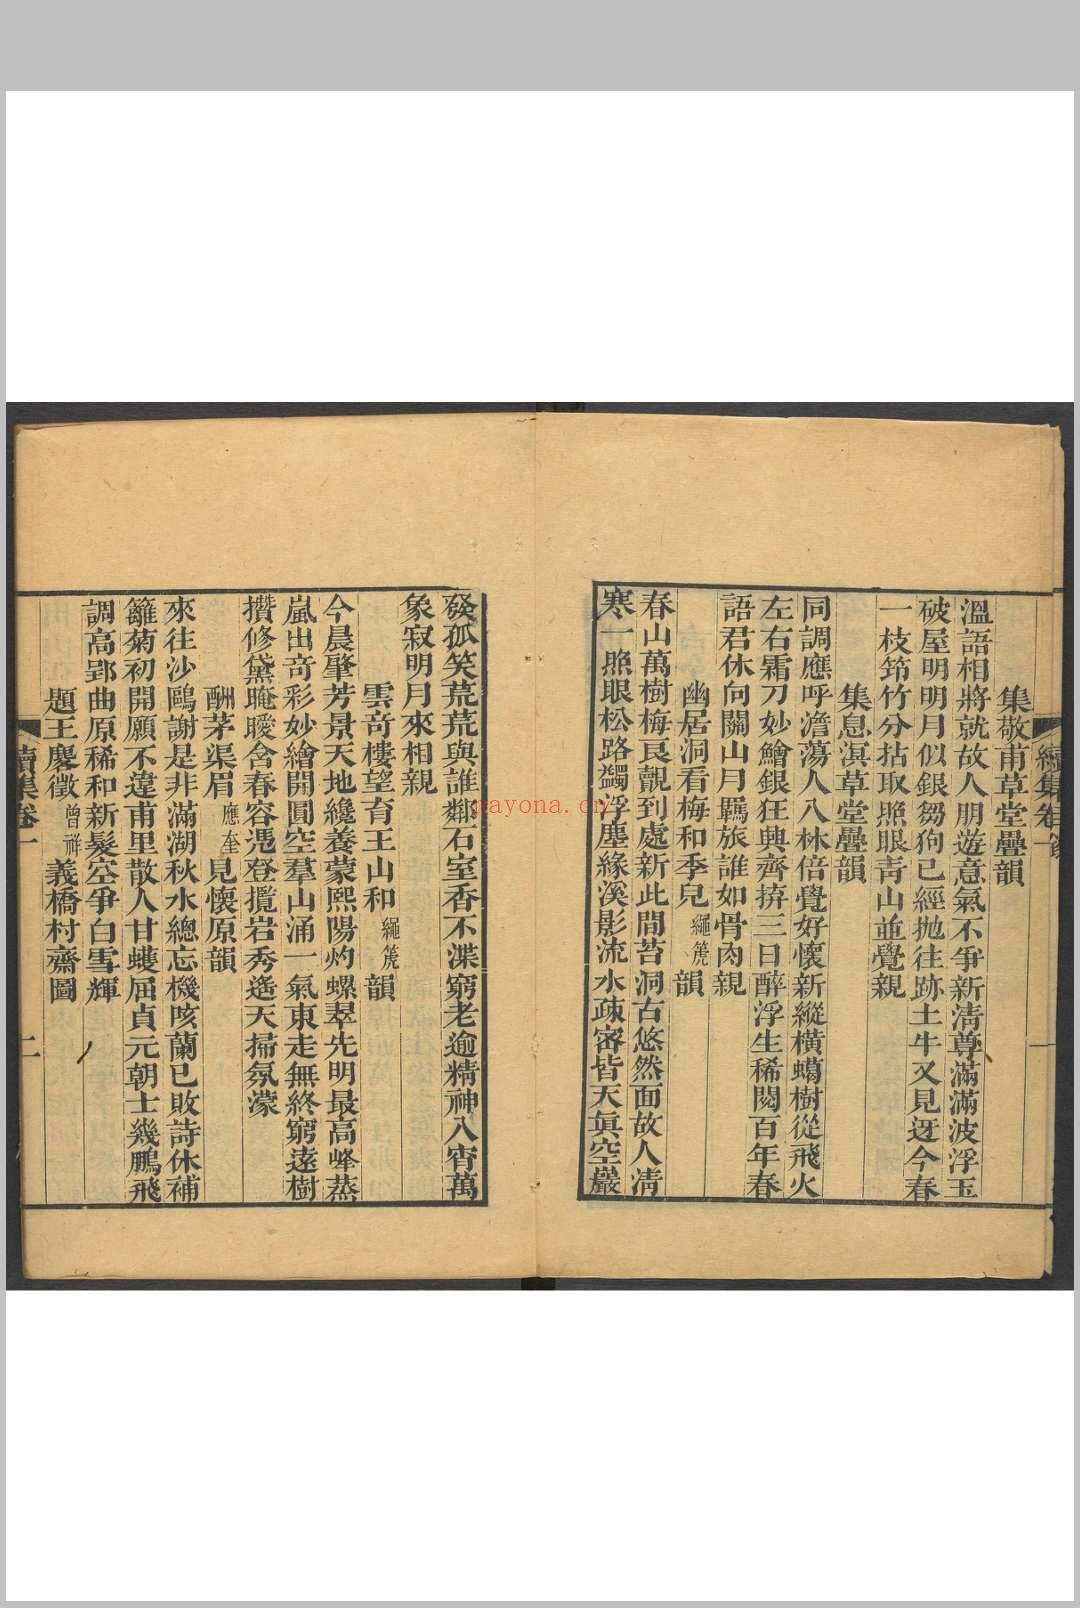 續集卷一
集敬甫草堂疊韻
溫語相將就故人朋遊意氣不爭新淸尊滿滿波浮玉
破屋明明月似銀芻狗已經拋往跡土牛又見迓今春
一枝筇竹分拈取照眼靑山並覺親
集息溟草堂疊韻
同調應呼澹蕩人八林倍覺好懷新縱橫蠟樹從飛火
左右霜刀妙鱠銀狂興齊拚三日醉浮生稀閱百年春
語君休向關山月羈旅誰如骨肉親
幽居洞看梅和季兒繩箎韻
春山萬樹梅艮覿到處新此間苔洞古悠然面故人淸
寒一照眼松路蠲浮塵緣溪影流水疎密皆天眞空巖
發孤笑荒荒與誰鄰石室香不渫窮老逾精神入宵萬
象寂明月來相親
雲奇樓望育王山和繩箎韻
今晨肇芳景天地纔養蒙熙陽灼螺翠先明最高峰蒸
嵐出奇彩妙繪開圓空羣山涌一氣東走無終窮遠樹
攢修黛晻曖含春容憑登攬岩秀遙天掃氛濛
酬茅渠眉應奎見懷原韻
來往沙鷗謝是非滿湖秋水總忘機咳蘭已敗詩休補
籬菊初開願不違甫里散人甘蠖屈貞元朝士幾鵬飛
調高郢曲原稀和新髮空爭白雪輝
題王慶徵曾祥義橋村齋圖
續集卷一
二
nayona.cn